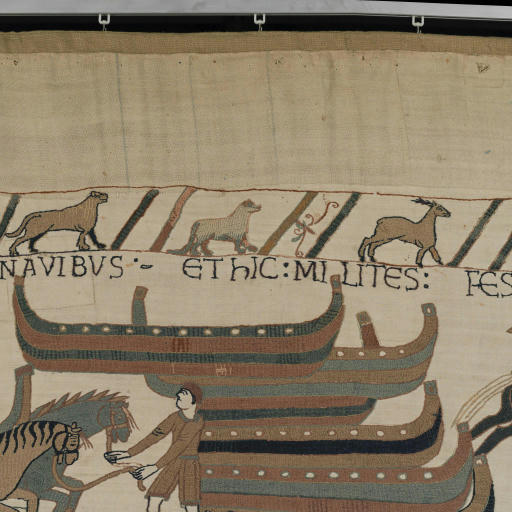 NAVIBVS :- ET hIC : MILITES : FES